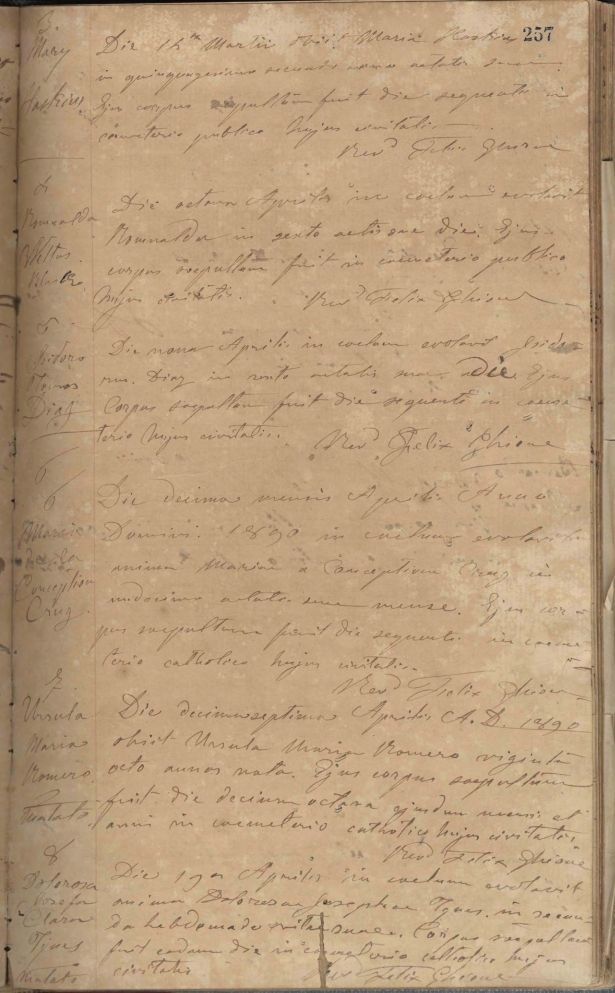 257
3
Mary
Haskins
Die 14 Martii obiit Maria Haskins
in quinquagesimo secundo anno aetatis suae.
Ejus corpus sepultum fuit die sequenti in
coemeterio publico hujus civitatis.
Revd Felix Ghione
Romualda
Die octava Aprilis in coelum evolavit
Romualda in sexto aetis suae die. Ejus
corpus sepultum fuit in coemeterio publico
hujus civitatis. Revd Felix Ghione
Isidoro
Diaz
Die nona Aprilis in coelum evolavit
Diaz in aetatis suae die. Ejus
Corpus sepultum fuit die sequenti in coeme-
terio hujus civitatis.
Revd Felix Ghione
6
6
Maria
de la
Conception
Cruz.
Die decima mensis Aprilis Anno
Domini 1890 in coelum evolavit
anima Mariae a Conceptione Cruz, in
undecimo aetatis suae mense. Ejus cor-
pus sepultum fuit die sequenti in coeme-
terio catholico hujus civitatis.
Revd Felix Ghione
7.
Ursula
Maria
Romero.
Mulato
Die decimaseptima Aprilis A.D. 1890
obiit Ursula Maria Romero viginti
octo annos nata. Ejus corpus sepultum
fuit die decima octava ejusdem mensis et
anni in coemeterio catholico hujus civitatis.
Revd Felix Ghione
8
Dolorosa
Josefa
Ignes
Mulato
Die 19a Aprilis in coelum evolavit
anima Dolorosae Josephae Ignes, in secun-
da hebdomada vitae suae. Corpus sepultum
fuit eadem die in coemeterio catholico hujus
civitatis Rev Felix Ghione